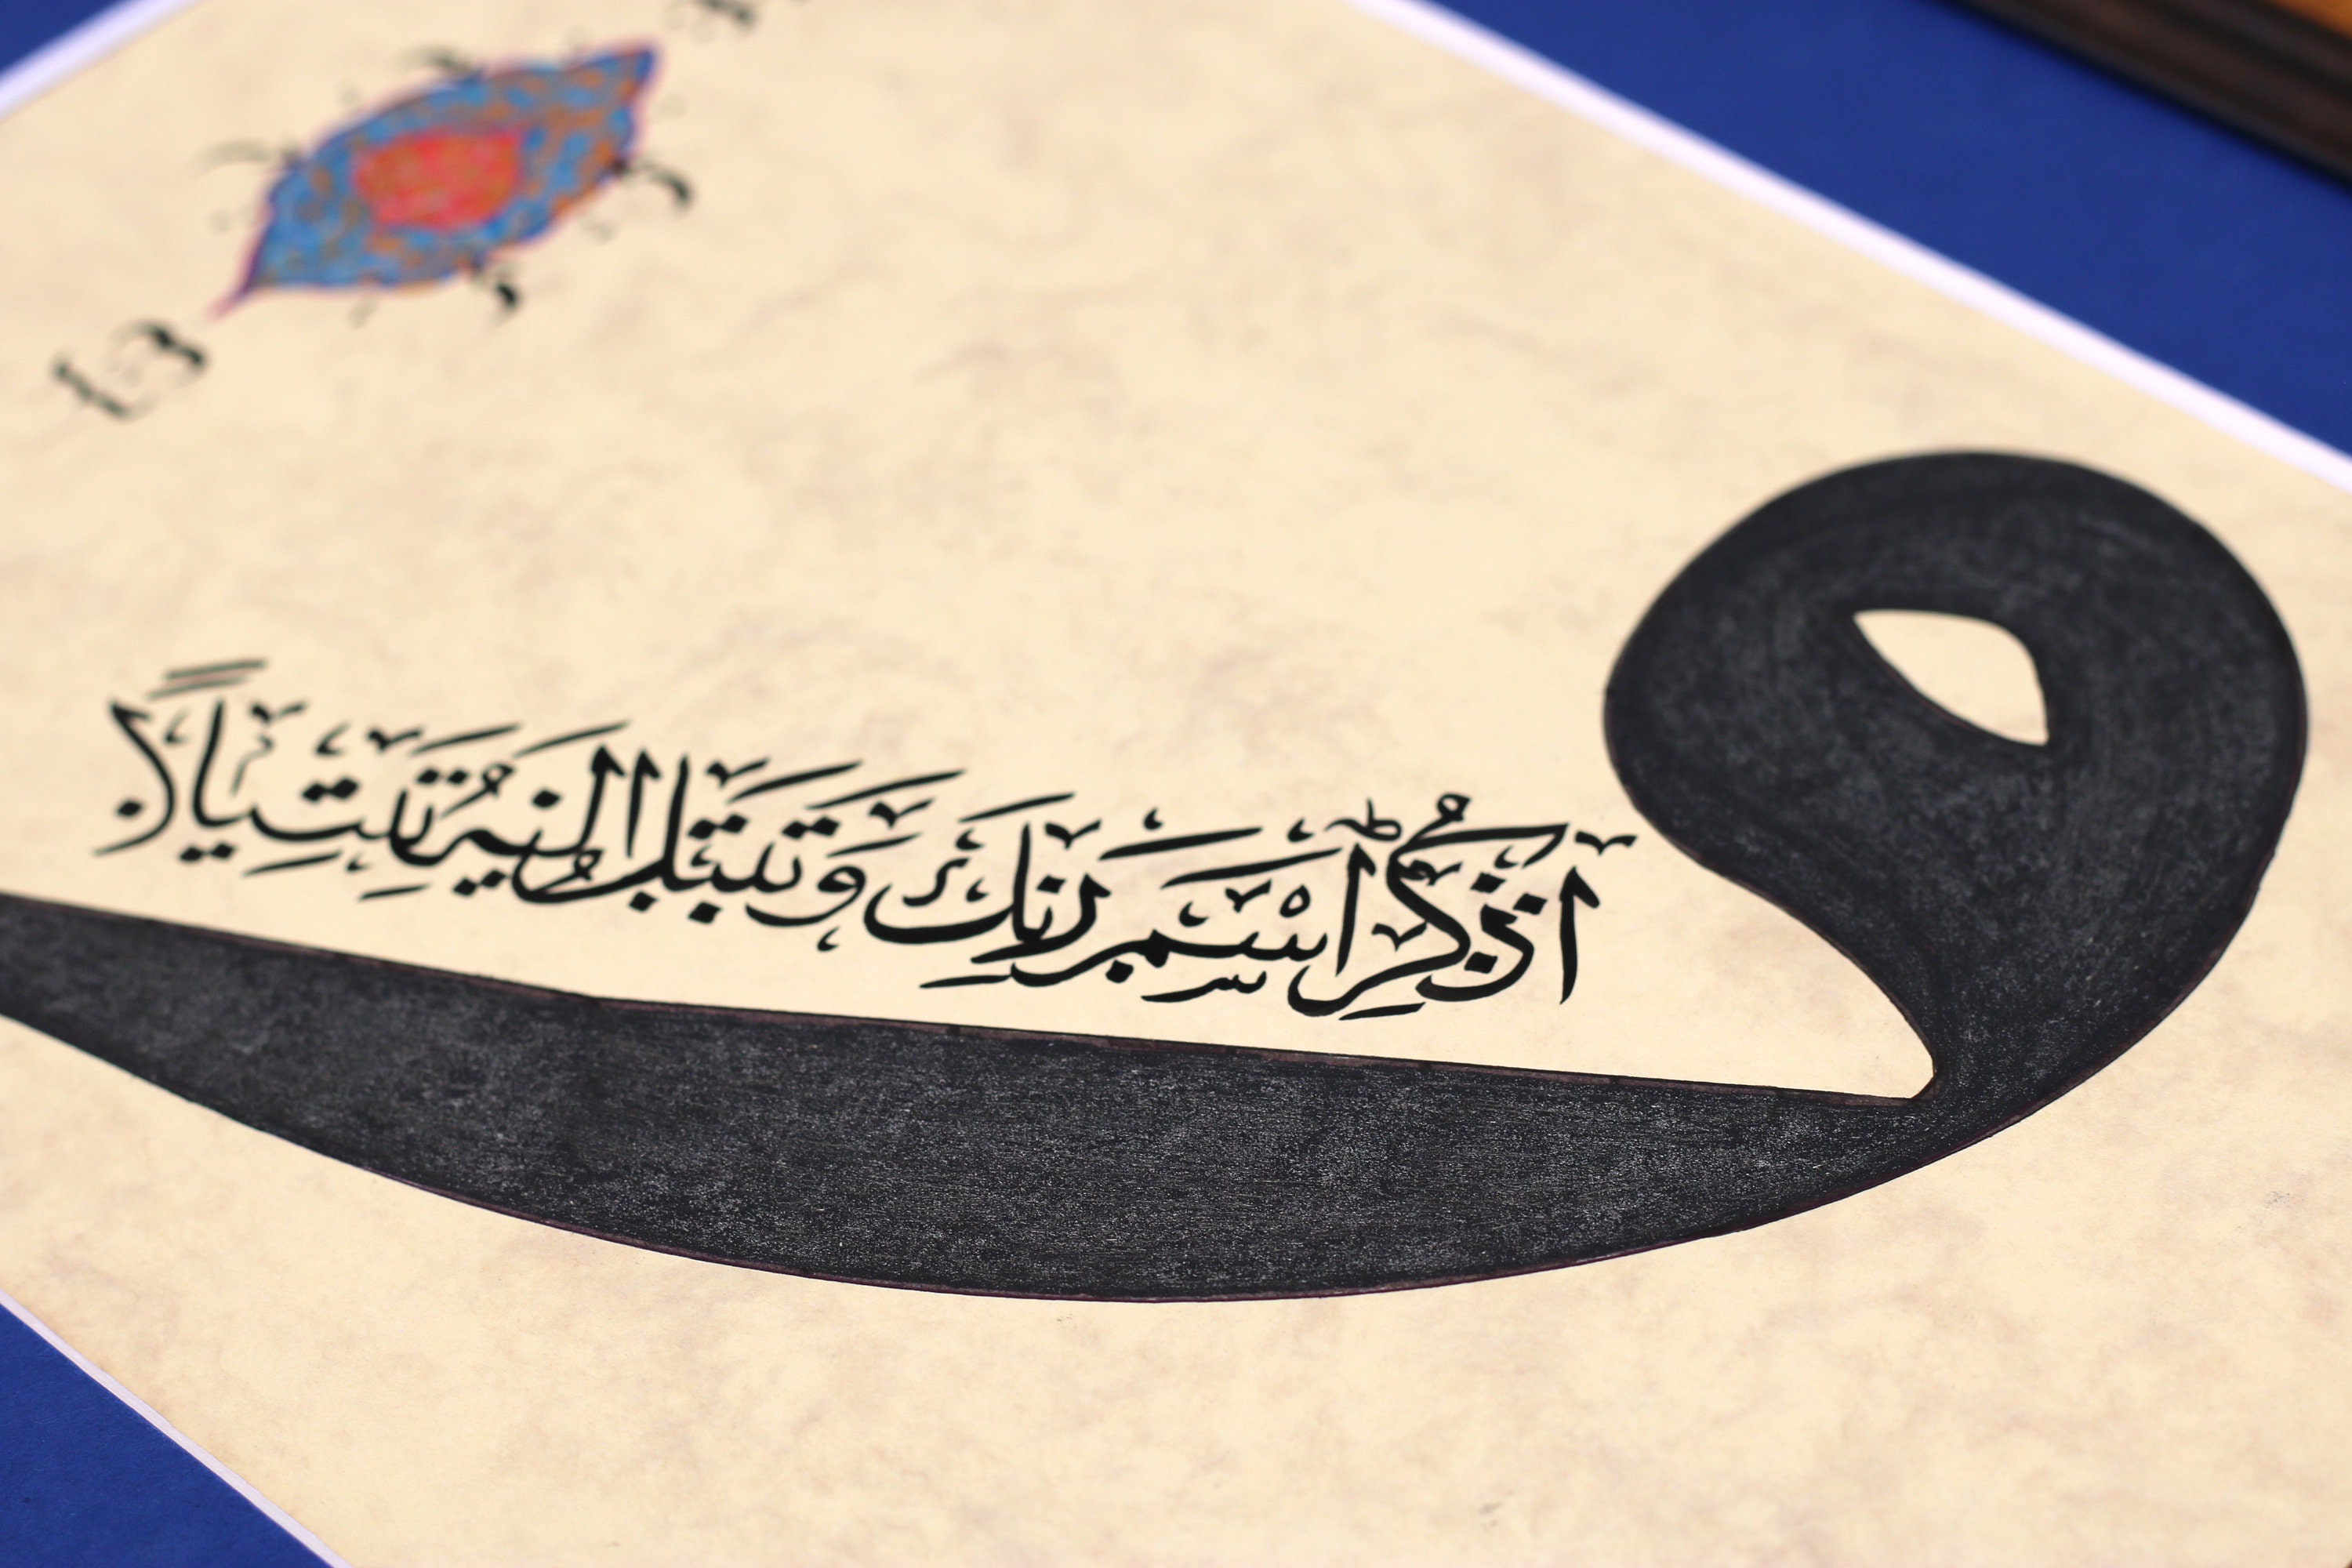 و
اذْكُرِ اسْمَ رَبِّكَ وَتَبَتَّلْ إِلَيْهِ تَبْتِيلًا